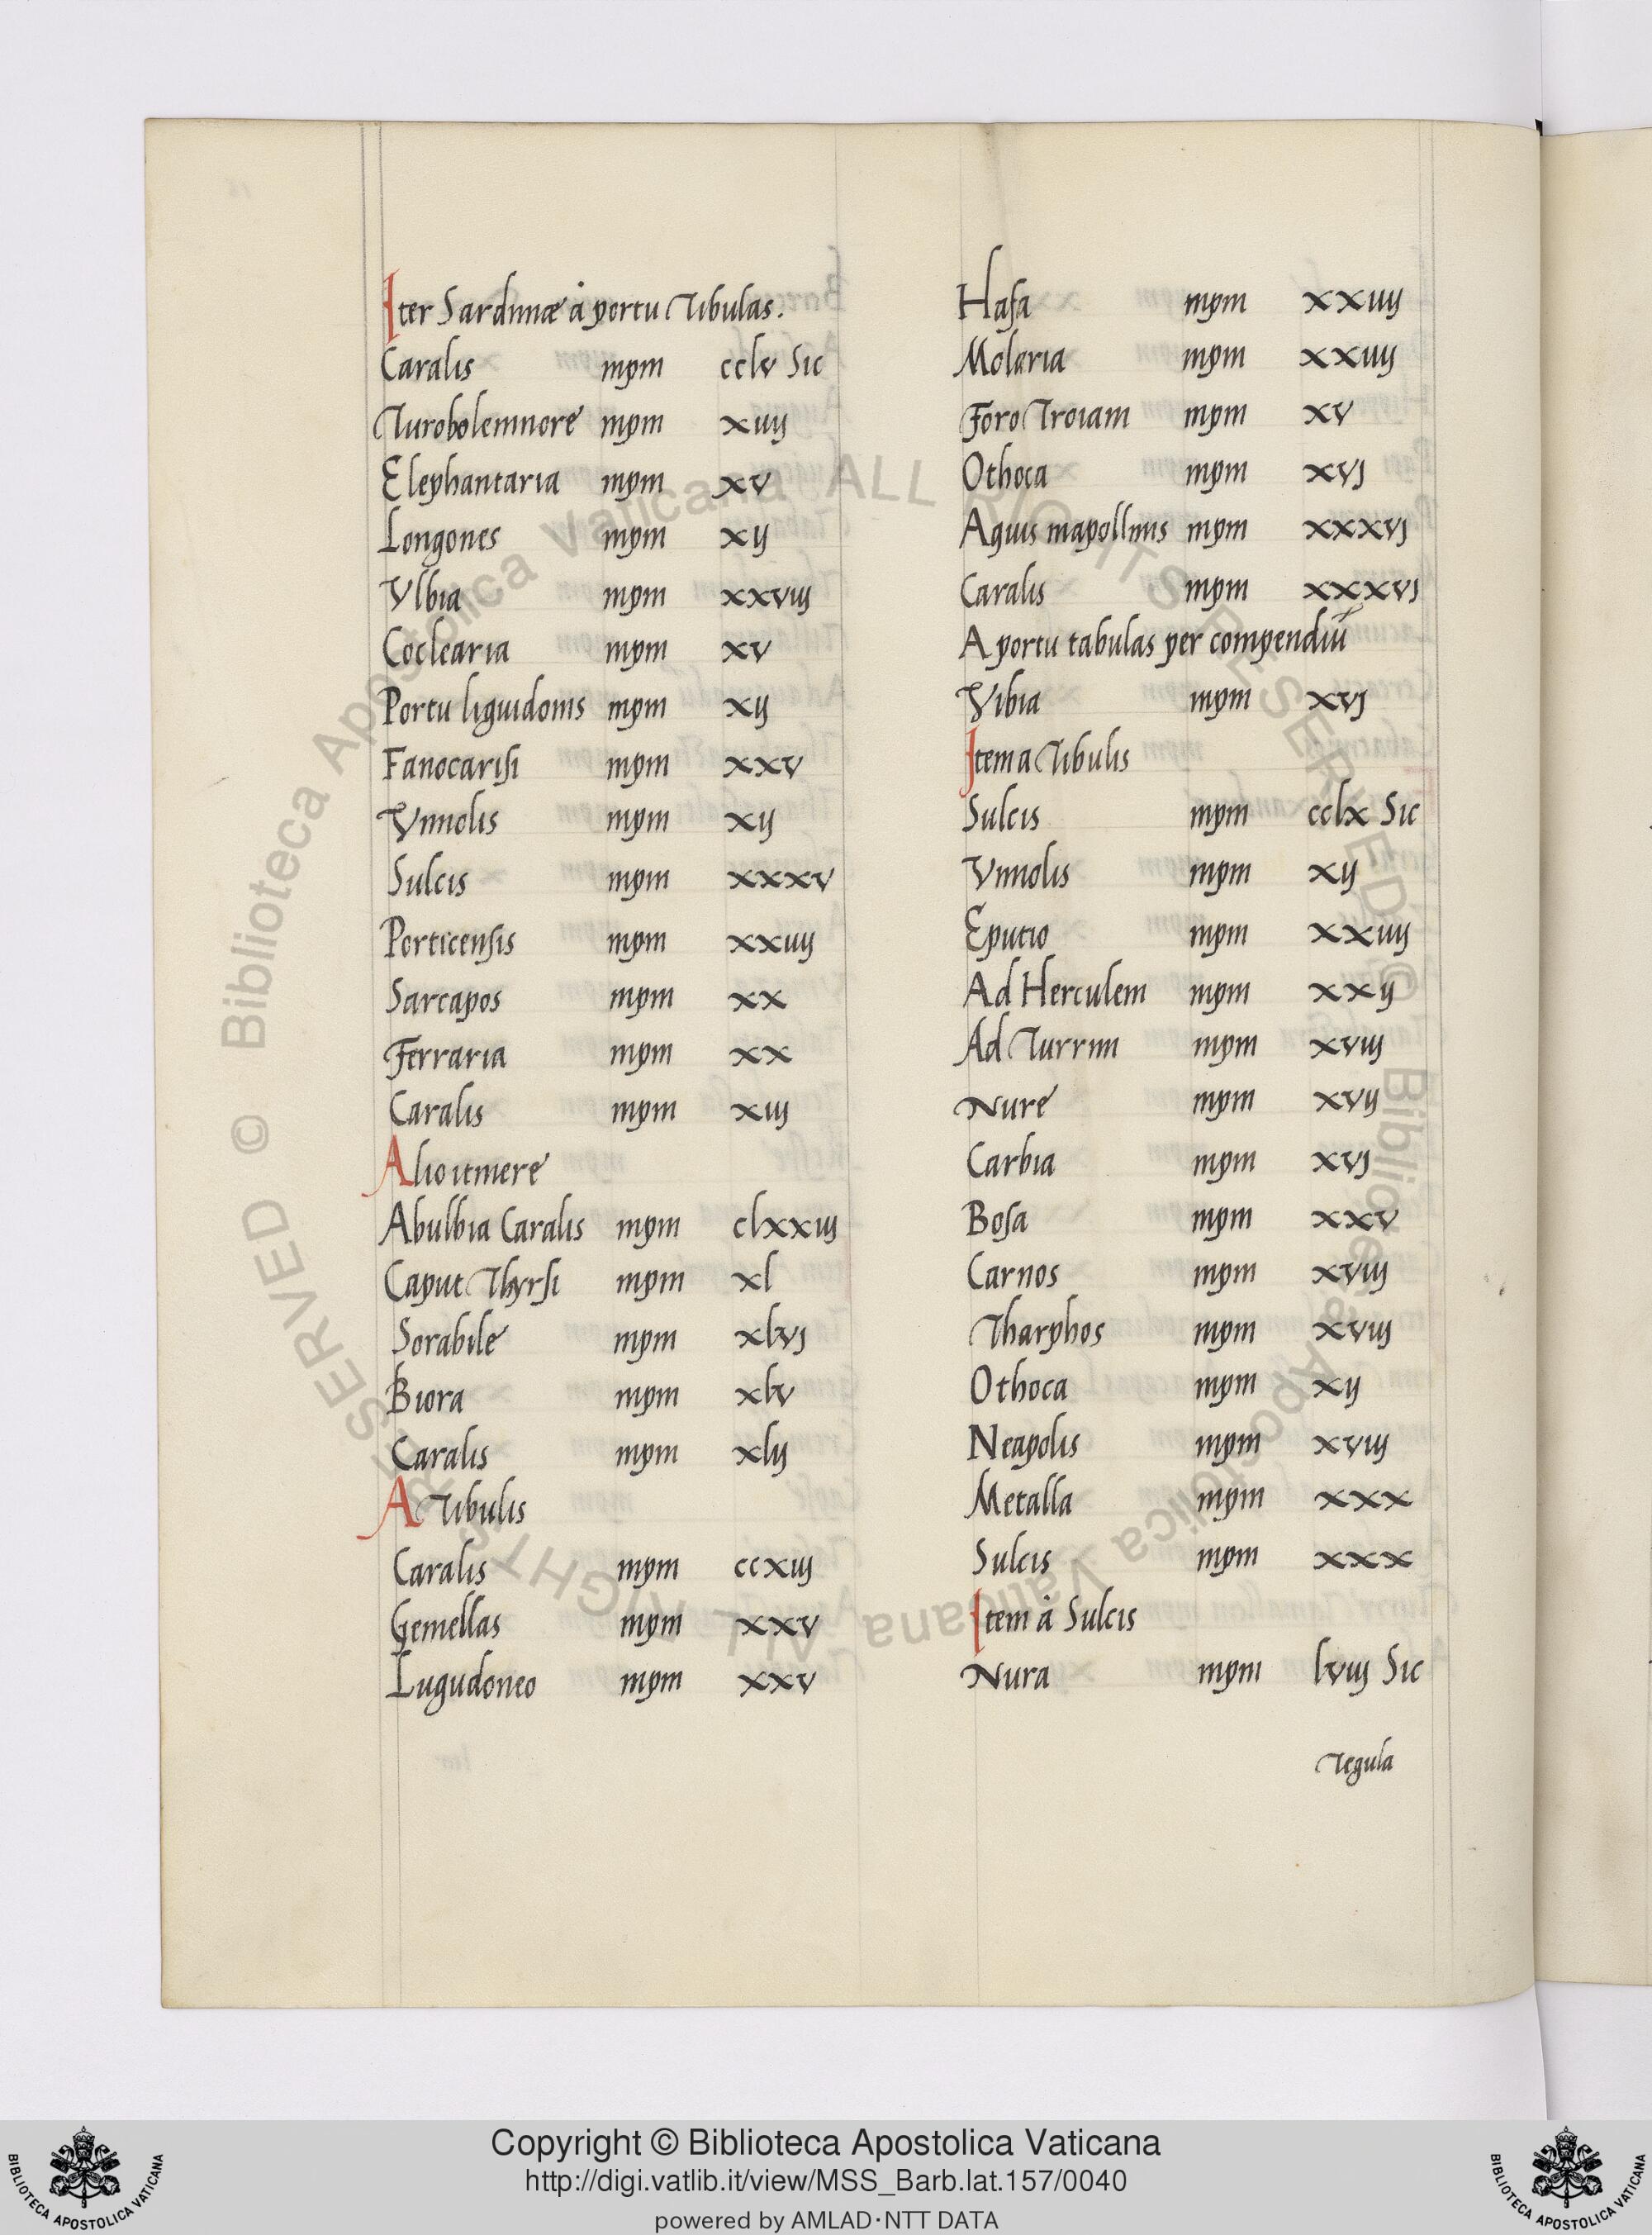 Iter Sardiniæ à portu Tibulas.
Caralis mpm cclv Sic
Turobolemnore mpm xiiij
Elephantaria mpm xv
Longones mpm xij
Vlbia mpm xxxviij
Coclearia mpm xv
Portu liguidonis mpm xij
Fanocarisi mpm xxv
Viniolis mpm xij
Sulcis mpm xxxv
Porticensis mpm xxiiij
Sarcapos mpm xx
Ferraria mpm xx
Caralis mpm xiij
Alio itinere
Abulbia Caralis mpm clxxiij
Caput Thyrsi mpm xl
Sorabile mpm xlvj
Biora mpm xlv
Caralis mpm xlij
A Tibulis
Caralis mpm ccxiij
Gemellas mpm xxv
Lugudoneo mpm xxv
Hasa mpm xxiiij
Molaria mpm xxiiij
Foro Troiam mpm xv
Othoca mpm xvj
Aguis mapollinis mpm xxxvj
Caralis mpm xxxvj
A portu tabulas per compendiū
Vibia mpm xvj
Item a Tibulis
Sulcis mpm cclx Sic
Viniolis mpm xij
Eputio mpm xxiiij
Ad Herculem mpm xxij
Ad Turrim mpm xviij
Nure mpm xvij
Carbia mpm xvj
Bosa mpm xxv
Carnos mpm xviij
Tharphos mpm xviij
Othoca mpm xij
Neapolis mpm xviij
Metalla mpm xxx
Sulcis mpm xxx
Item à Sulcis
Nura mpm lviij Sic
Tegula
© Biblioteca Apostolica Vaticana ALL RIGHTS RESERVED © Biblioteca Apostolica Vaticana ALL RIGHTS RESERVED
Copyright © Biblioteca Apostolica Vaticana
http://digi.vatlib.it/view/MSS_Barb.lat.157/0040
powered by AMLAD·NTT DATA
BIBLIOTECA APOSTOLICA VATICANA
BIBLIOTECA APOSTOLICA VATICANA